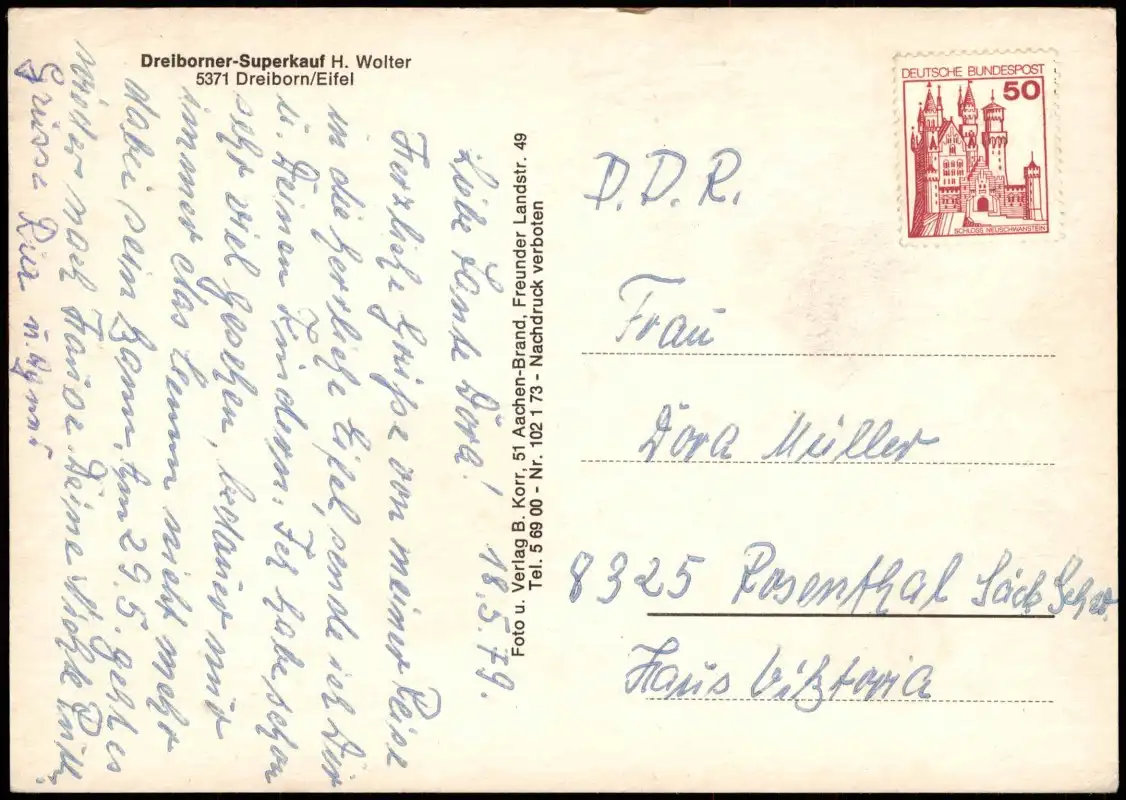 Dreiborner-Superkauf H. Wolter
5371 Dreiborn/Eifel
Liebe Tante Dora! 18.5.79.
Herzliche Grüße von meiner Reise
in die herrliche Eifel sende ich Dir
u. Deinen Kindern. Ich habe schon
sehr viel gesehen, bedauer nur
immer das Benno nicht mehr
dabei sein kann. Am 29.5. geht es
wieder nach Hause. Deine
Grüsse Ria u.
Foto u. Verlag B. Korr, 51 Aachen-Brand, Freunder Landstr. 49
Tel. 5 69 00 - Nr. 102 1 73 - Nachdruck verboten
DEUTSCHE BUNDESPOST
50
SCHLOSS NEUSCHWANSTEIN
D.D.R.
Frau
Dora Müller
8325 Rosenthal Säch Schw
Haus Viktoria